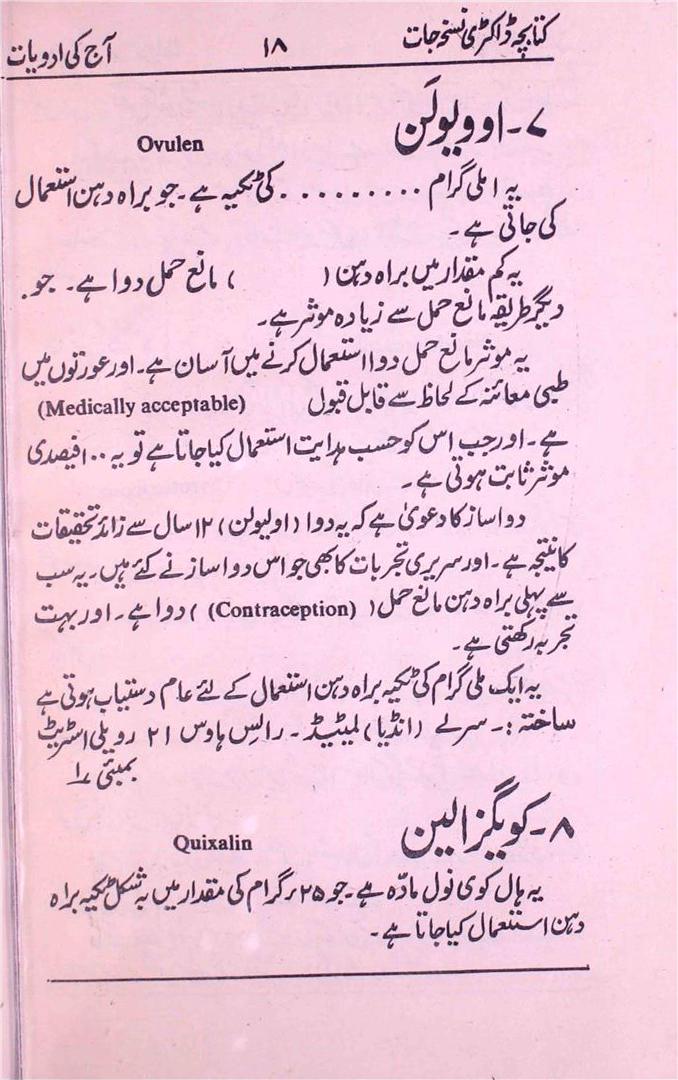 کتابچہ ڈاکٹری نسخہ جات ۱۸ آج کی ادویات
۷۔ اوویولَن
Ovulen
یہ ۱ ملی گرام ......... کی ٹکیہ ہے۔ جو براہ دہن استعمال
کی جاتی ہے۔
یہ کم مقدار میں براہ دہن ( ) مانع حمل دوا ہے۔ جو
دیگر طریقہ مانع حمل سے زیادہ موثر ہے۔
یہ موثر مانع حمل دوا استعمال کرنے میں آسان ہے۔ اور عورتوں میں
طبی معائنہ کے لحاظ سے قابل قبول (Medically acceptable)
ہے۔ اور جب اس کو حسب ہدایت استعمال کیا جاتا ہے تو یہ ۱۰۰ فیصدی
موثر ثابت ہوتی ہے۔
دوا ساز کا دعویٰ ہے کہ یہ دوا (اولیولن) ۱۲ سال سے زائد تحقیقات
کا نتیجہ ہے۔ اور سریری تجربات کا بھی جو اس دوا ساز نے کئے ہیں۔ یہ سب
سے پہلی براہ دہن مانع حمل ( (Contraception) ) دوا ہے۔ اور بہت
تجربہ رکھتی ہے۔
یہ ایک ملی گرام کی ٹکیہ براہ دہن استعمال کے لئے عام دستیاب ہوتی ہے
ساختہ :۔ سرلے (انڈیا) لمیٹیڈ۔ رالیس ہاوس ۲۱ رویلی اسٹریٹ
بمبئی ۱
۸۔ کویگزالین
Quixalin
یہ ہال کوی نول مادّہ ہے۔ جو ۲۵ء گرام کی مقدار میں بہ شکل ٹکیہ براہ
دہن استعمال کیا جاتا ہے۔